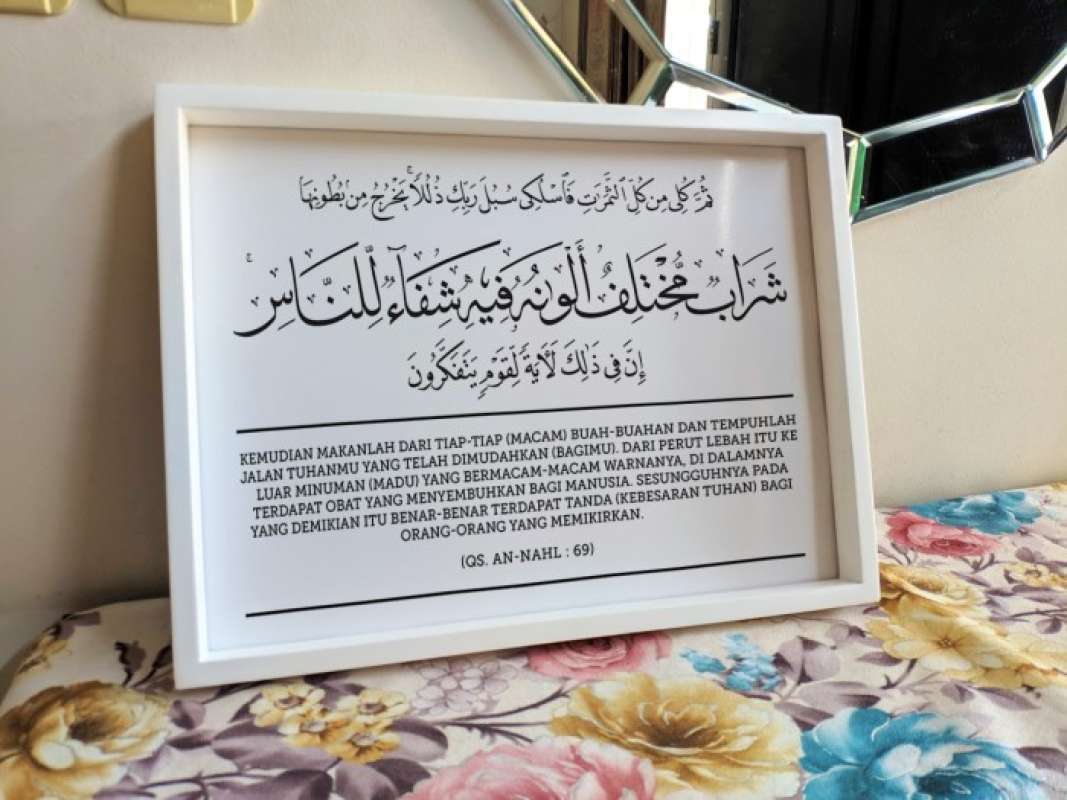 ثُمَّ كُلِى مِن كُلِّ ٱلثَّمَرَٰتِ فَٱسْلُكِى سُبُلَ رَبِّكِ ذُلُلًا ۚ يَخْرُجُ مِنۢ بُطُونِهَا
شَرَابٌ مُّخْتَلِفٌ أَلْوَٰنُهُۥ فِيهِ شِفَآءٌ لِّلنَّاسِ ۗ
إِنَّ فِى ذَٰلِكَ لَـَٔايَةً لِّقَوْمٍ يَتَفَكَّرُونَ
KEMUDIAN MAKANLAH DARI TIAP-TIAP (MACAM) BUAH-BUAHAN DAN TEMPUHLAH
JALAN TUHANMU YANG TELAH DIMUDAHKAN (BAGIMU). DARI PERUT LEBAH ITU KE
LUAR MINUMAN (MADU) YANG BERMACAM-MACAM WARNANYA, DI DALAMNYA
TERDAPAT OBAT YANG MENYEMBUHKAN BAGI MANUSIA. SESUNGGUHNYA PADA
YANG DEMIKIAN ITU BENAR-BENAR TERDAPAT TANDA (KEBESARAN TUHAN) BAGI
ORANG-ORANG YANG MEMIKIRKAN.
(QS. AN-NAHL : 69)